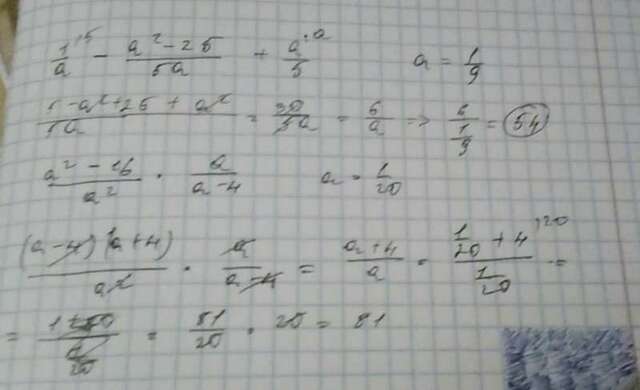 1/a ·5 − (a² − 25)/5a + a/5 ·a    a = 1/9
(5 − a² + 25 + a²)/5a = 30/5a = 6/a => 6/(1/9) = 54
(a² − 16)/a² · a/(a−4)    a = 1/20
((a−4)(a+4))/a² · a/(a−4) = (a+4)/a = (1/20 + 4 ·20)/(1/20) =
= = 81/20 · 20 = 81